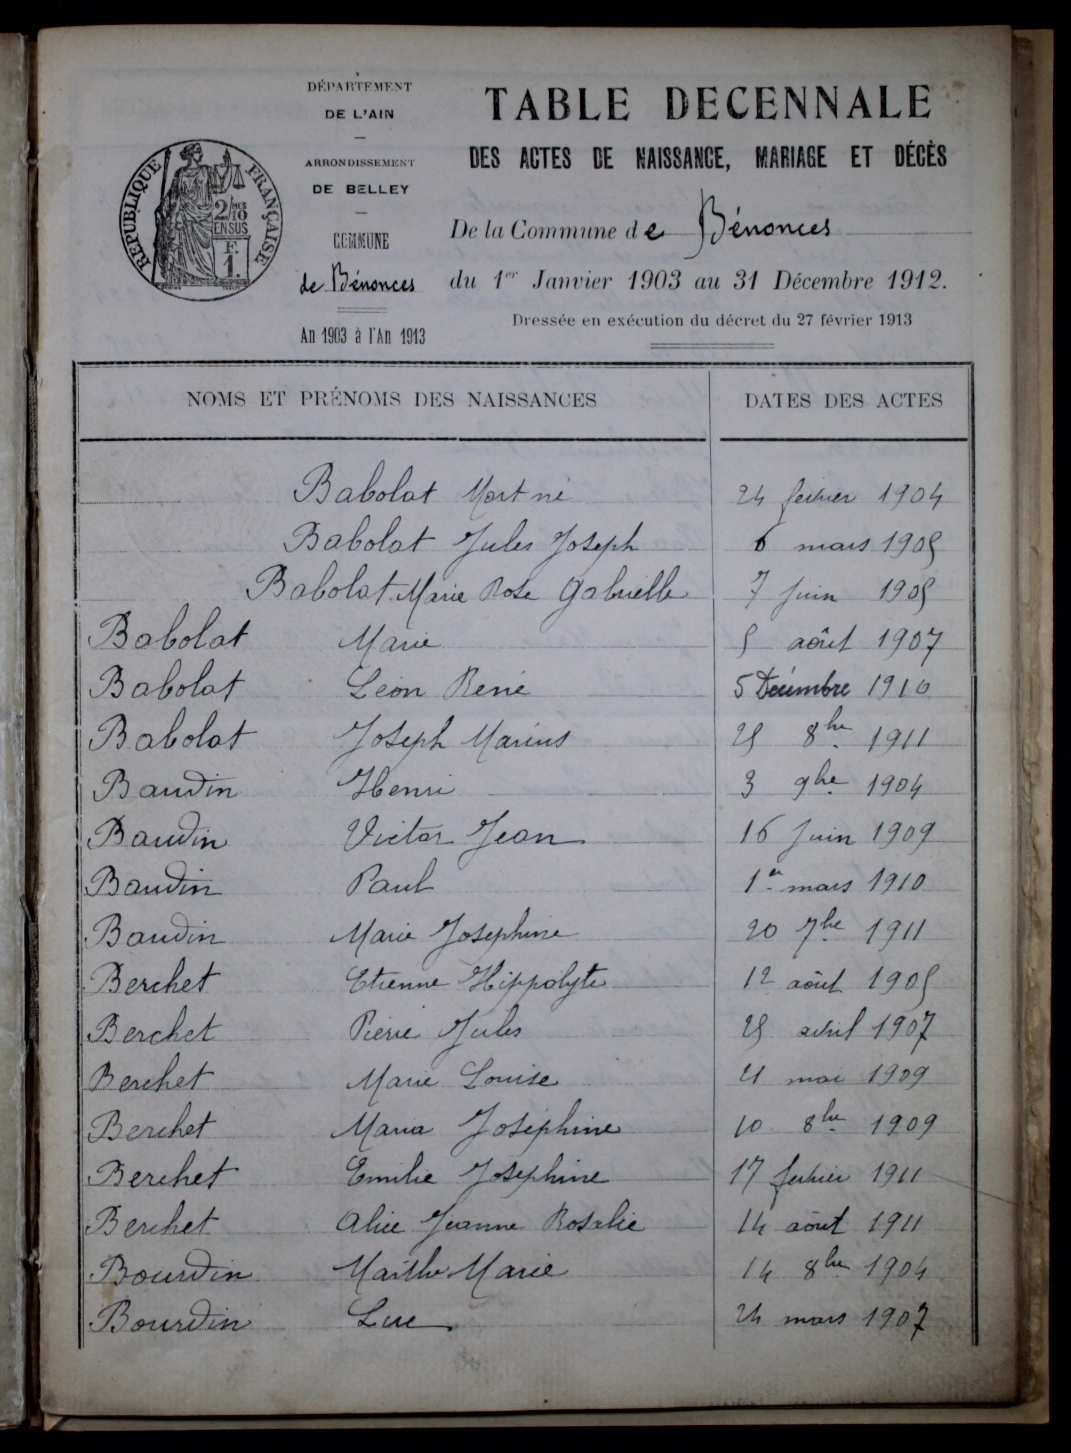 DÉPARTEMENT
DE L'AIN
ARRONDISSEMENT
DE BELLEY
COMMUNE
de Bénonces
An 1903 à l'An 1913
RÉPUBLIQUE FRANÇAISE
2/10 MES
EN SUS
F.
1.
TABLE DECENNALE
DES ACTES DE NAISSANCE, MARIAGE ET DÉCÈS
De la Commune de Bénonces
du 1er Janvier 1903 au 31 Décembre 1912.
Dressée en exécution du décret du 27 février 1913
NOMS ET PRÉNOMS DES NAISSANCES DATES DES ACTES
Babolat Mort né 24 février 1904
Babolat Jules Joseph 6 mars 1905
Babolat Marie Rose Gabrielle 7 Juin 1905
Babolat Marie 5 août 1907
Babolat Léon René 5 Décembre 1910
Babolat Joseph Marius 25 8bre 1911
Baudin Henri 3 9bre 1904
Baudin Victor Jean 16 Juin 1909
Baudin Paul 1er mars 1910
Baudin Marie Josephine 20 7bre 1911
Berchet Etienne Hippolyte 12 août 1905
Berchet Pierre Jules 25 avril 1907
Berchet Marie Louise 21 mai 1909
Berchet Maria Joséphine 10 8bre 1909
Berchet Emilie Joséphine 17 février 1911
Berchet Alice Jeanne Rosalie 14 août 1911
Bourdin Marthe Marie 14 8bre 1904
Bourdin Luc 24 mars 1907